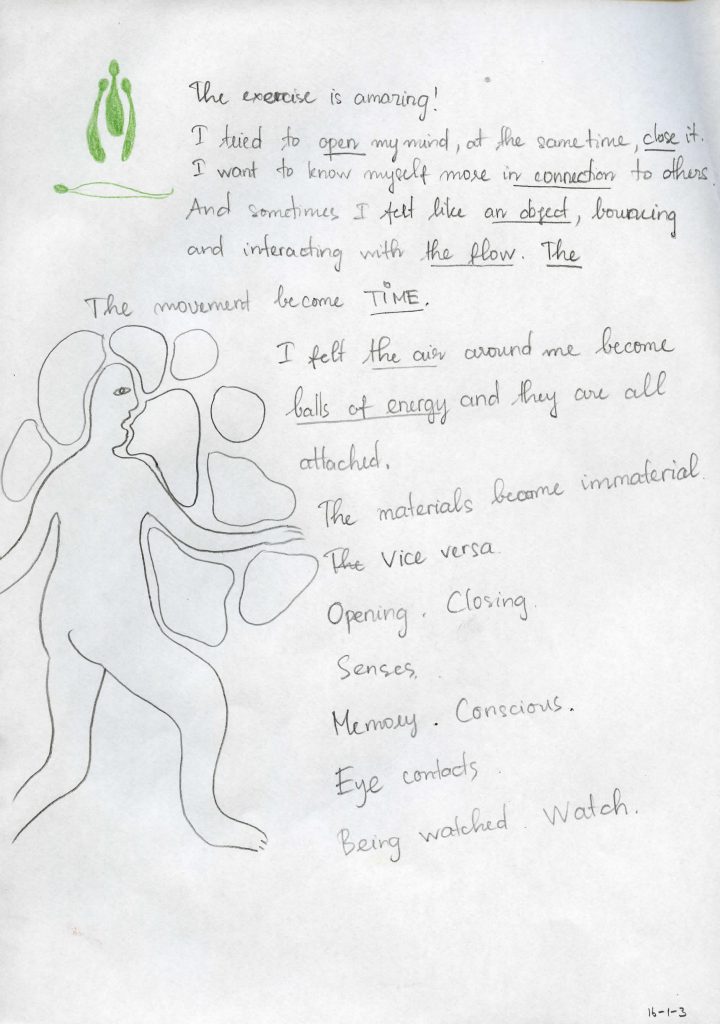 The exercise is amazing!
I tried to open my mind, at the same time, close it.
I want to know myself more in connection to others.
And sometimes I felt like an object, bouncing
and interacting with the flow. The
The movement become TIME.
I felt the air around me become
balls of energy and they are all
attached.
The materials become immaterial.
The Vice versa.
Opening. Closing.
Senses.
Memory. Conscious.
Eye contacts
Being watched. Watch.
16-1-3